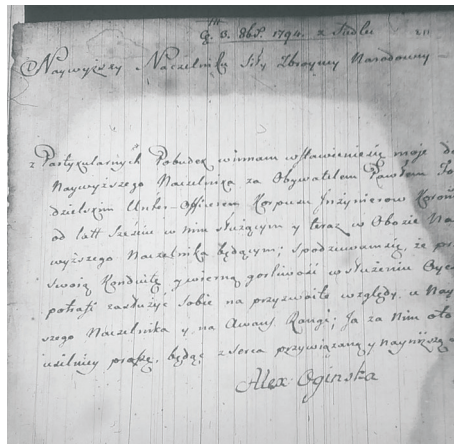 G. 3. 8br. 1794. z Siedlec
Naywyższy Naczelniku Siły Zbroyney Narodowey
z Partykularnych Pobudek winnam wstawienie się moje do
Naywyższego Naczelnika za Obywatelem Pawłem
dzielskim Unter-Officerem Korpusu Inżynierow
od latt sześciu w nim służącym y teraz w Obozie Na
wyższego Naczelnika będącym; spodziewam się, że prz
swoią Konduitę y wierną gorliwość w służeniu Oycz
potrafi zasłużyć sobie na przyzwoite względy u Nayw
szego Naczelnika y na Awans Rangi; Ja za nim oto
usilniey proszę, będąc z serca przywiązaną y nayniższą
Alex Oginska